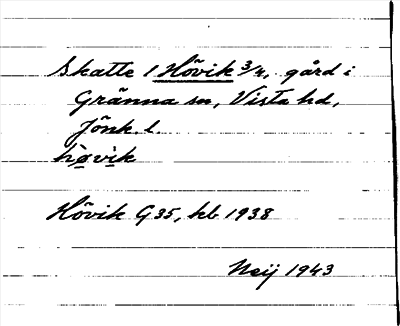 Skatte 1 Hövik 3/4, gård i
Gränna sn, Vista hd,
Jönk. l.
hø̀vìk
Hövik G 35, kb 1938
Neij 1943